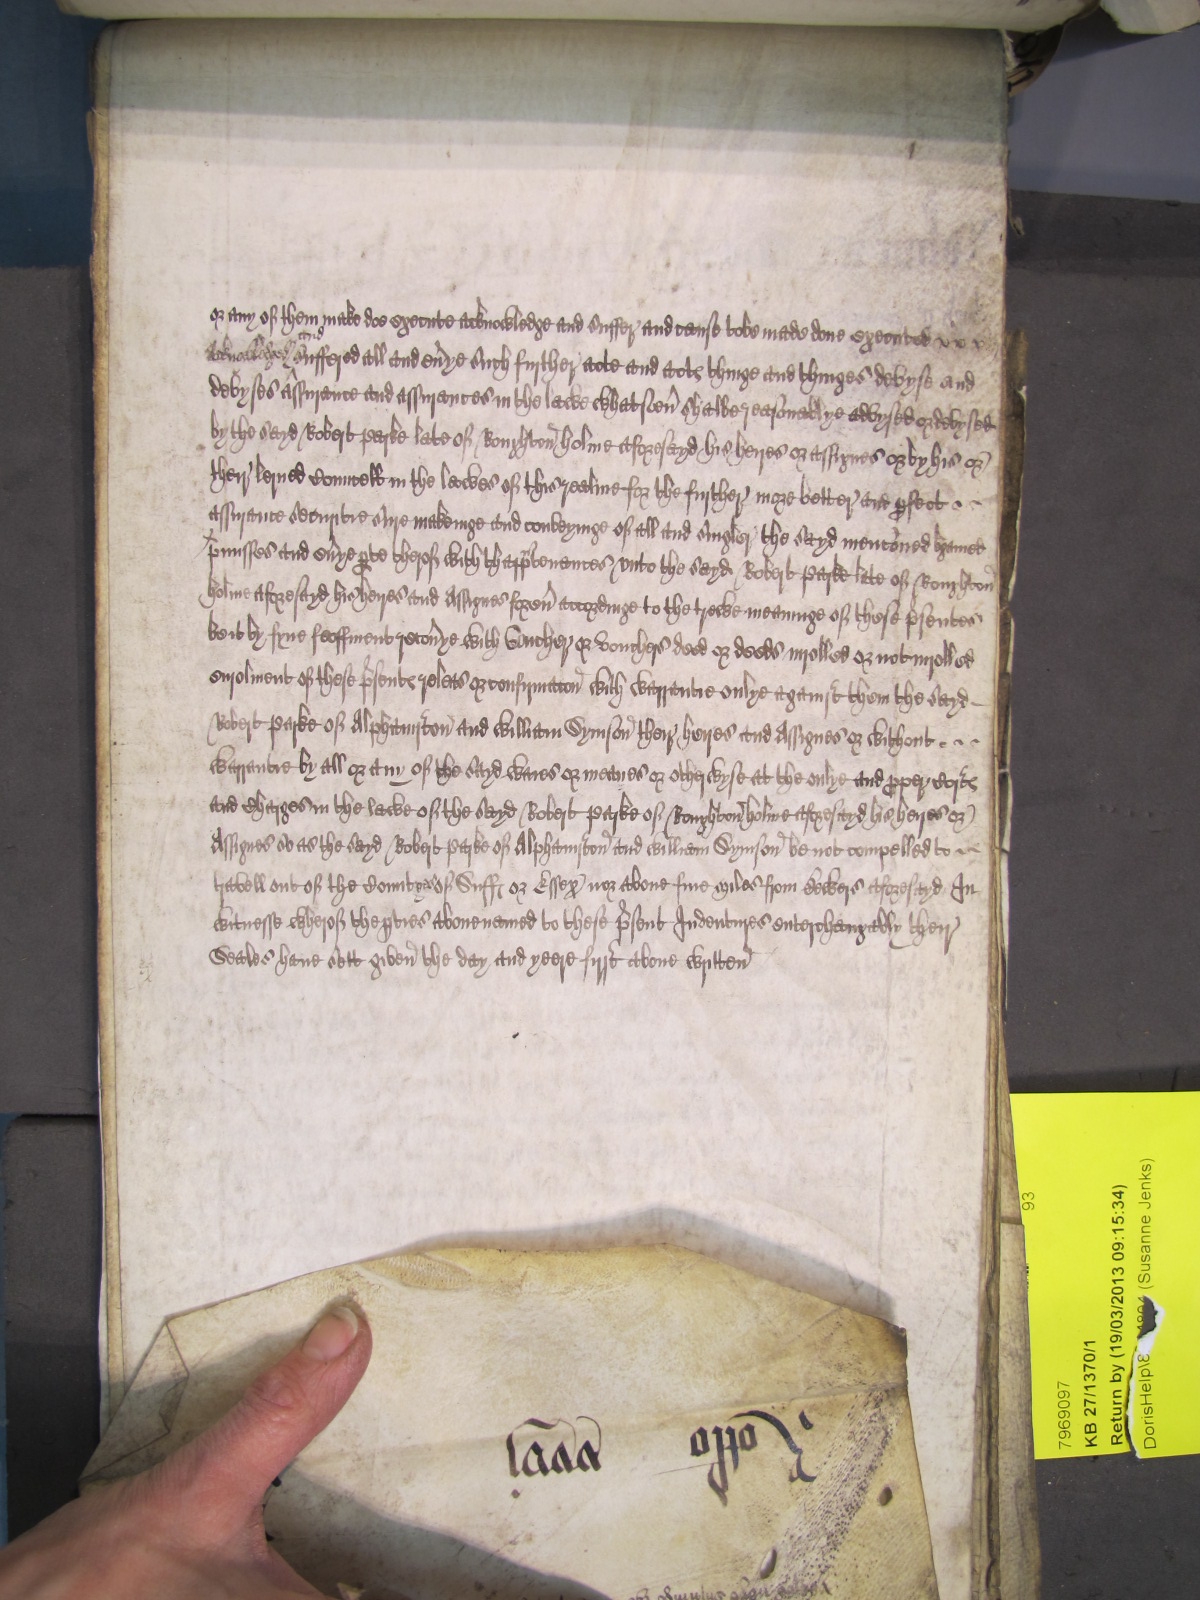 or any of them make doe execute acknowledge and suffer and cause to be made done executed
acknowledged and suffered all and eu'ye such further acte and acts thinge and thinges devyse and
devyses assurance and assurances in the lawe whatsoeu' shalbe reasonablye advysed or devysed
by the sayd Robert Parke late of Roughton holme aforesayd his heyres or assignes or by his or
their lerned Councell in the lawes of this realme for the further more better and p'fect
assurance securitie sure makeinge and conveyinge of all and singler the sayd mencioned
p'misses and eu'ye p'te therof with thapp'tenances vnto the sayd Robert Parke late of Roughton
holme aforesayd his heyres and Assignes foreu' accordinge to the trewe meaninge of these p'sentes
be it by fyne feoffment recou'ye with Voucher or Vouchers deed or deeds inrolled or not inrolled
enrolment of these p'sents releas or confirmacon with warrantie onlye against them the sayd
Robert Parke of Alphamston and William Symson their heyres and Assignes or without
warrantie by all or any of the sayd wayes or meanes or otherwyse at the onlye and p'per costs
and charges in the lawe of the sayd Robert Parke of Roughton holme aforesayd his heyres or
Assignes so as the sayd Robert Parke of Alphamston and William Symson be not compelled to
travell out of the Countyes of Suff' or Essex nor above fiue myles from aforesayd In
witnesse wherof the p'ties abouenamed to these p'sent Indentures enterchangably their
Seales haue sett geven the day and yeere first aboue wrytten
Rotto xxvj
93
7969097
KB 27/1370/1
Return by (19/03/2013 09:15:34)
(Susanne Jenks)